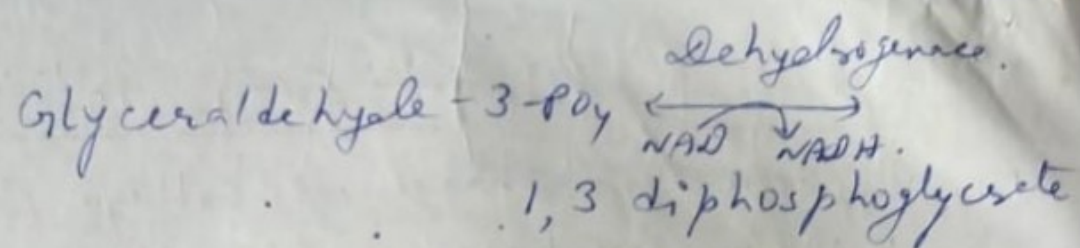 Dehydrogenase.
Glyceraldehyde-3-PO4 ⟷
NAD NADH.
1,3 diphosphoglycerate